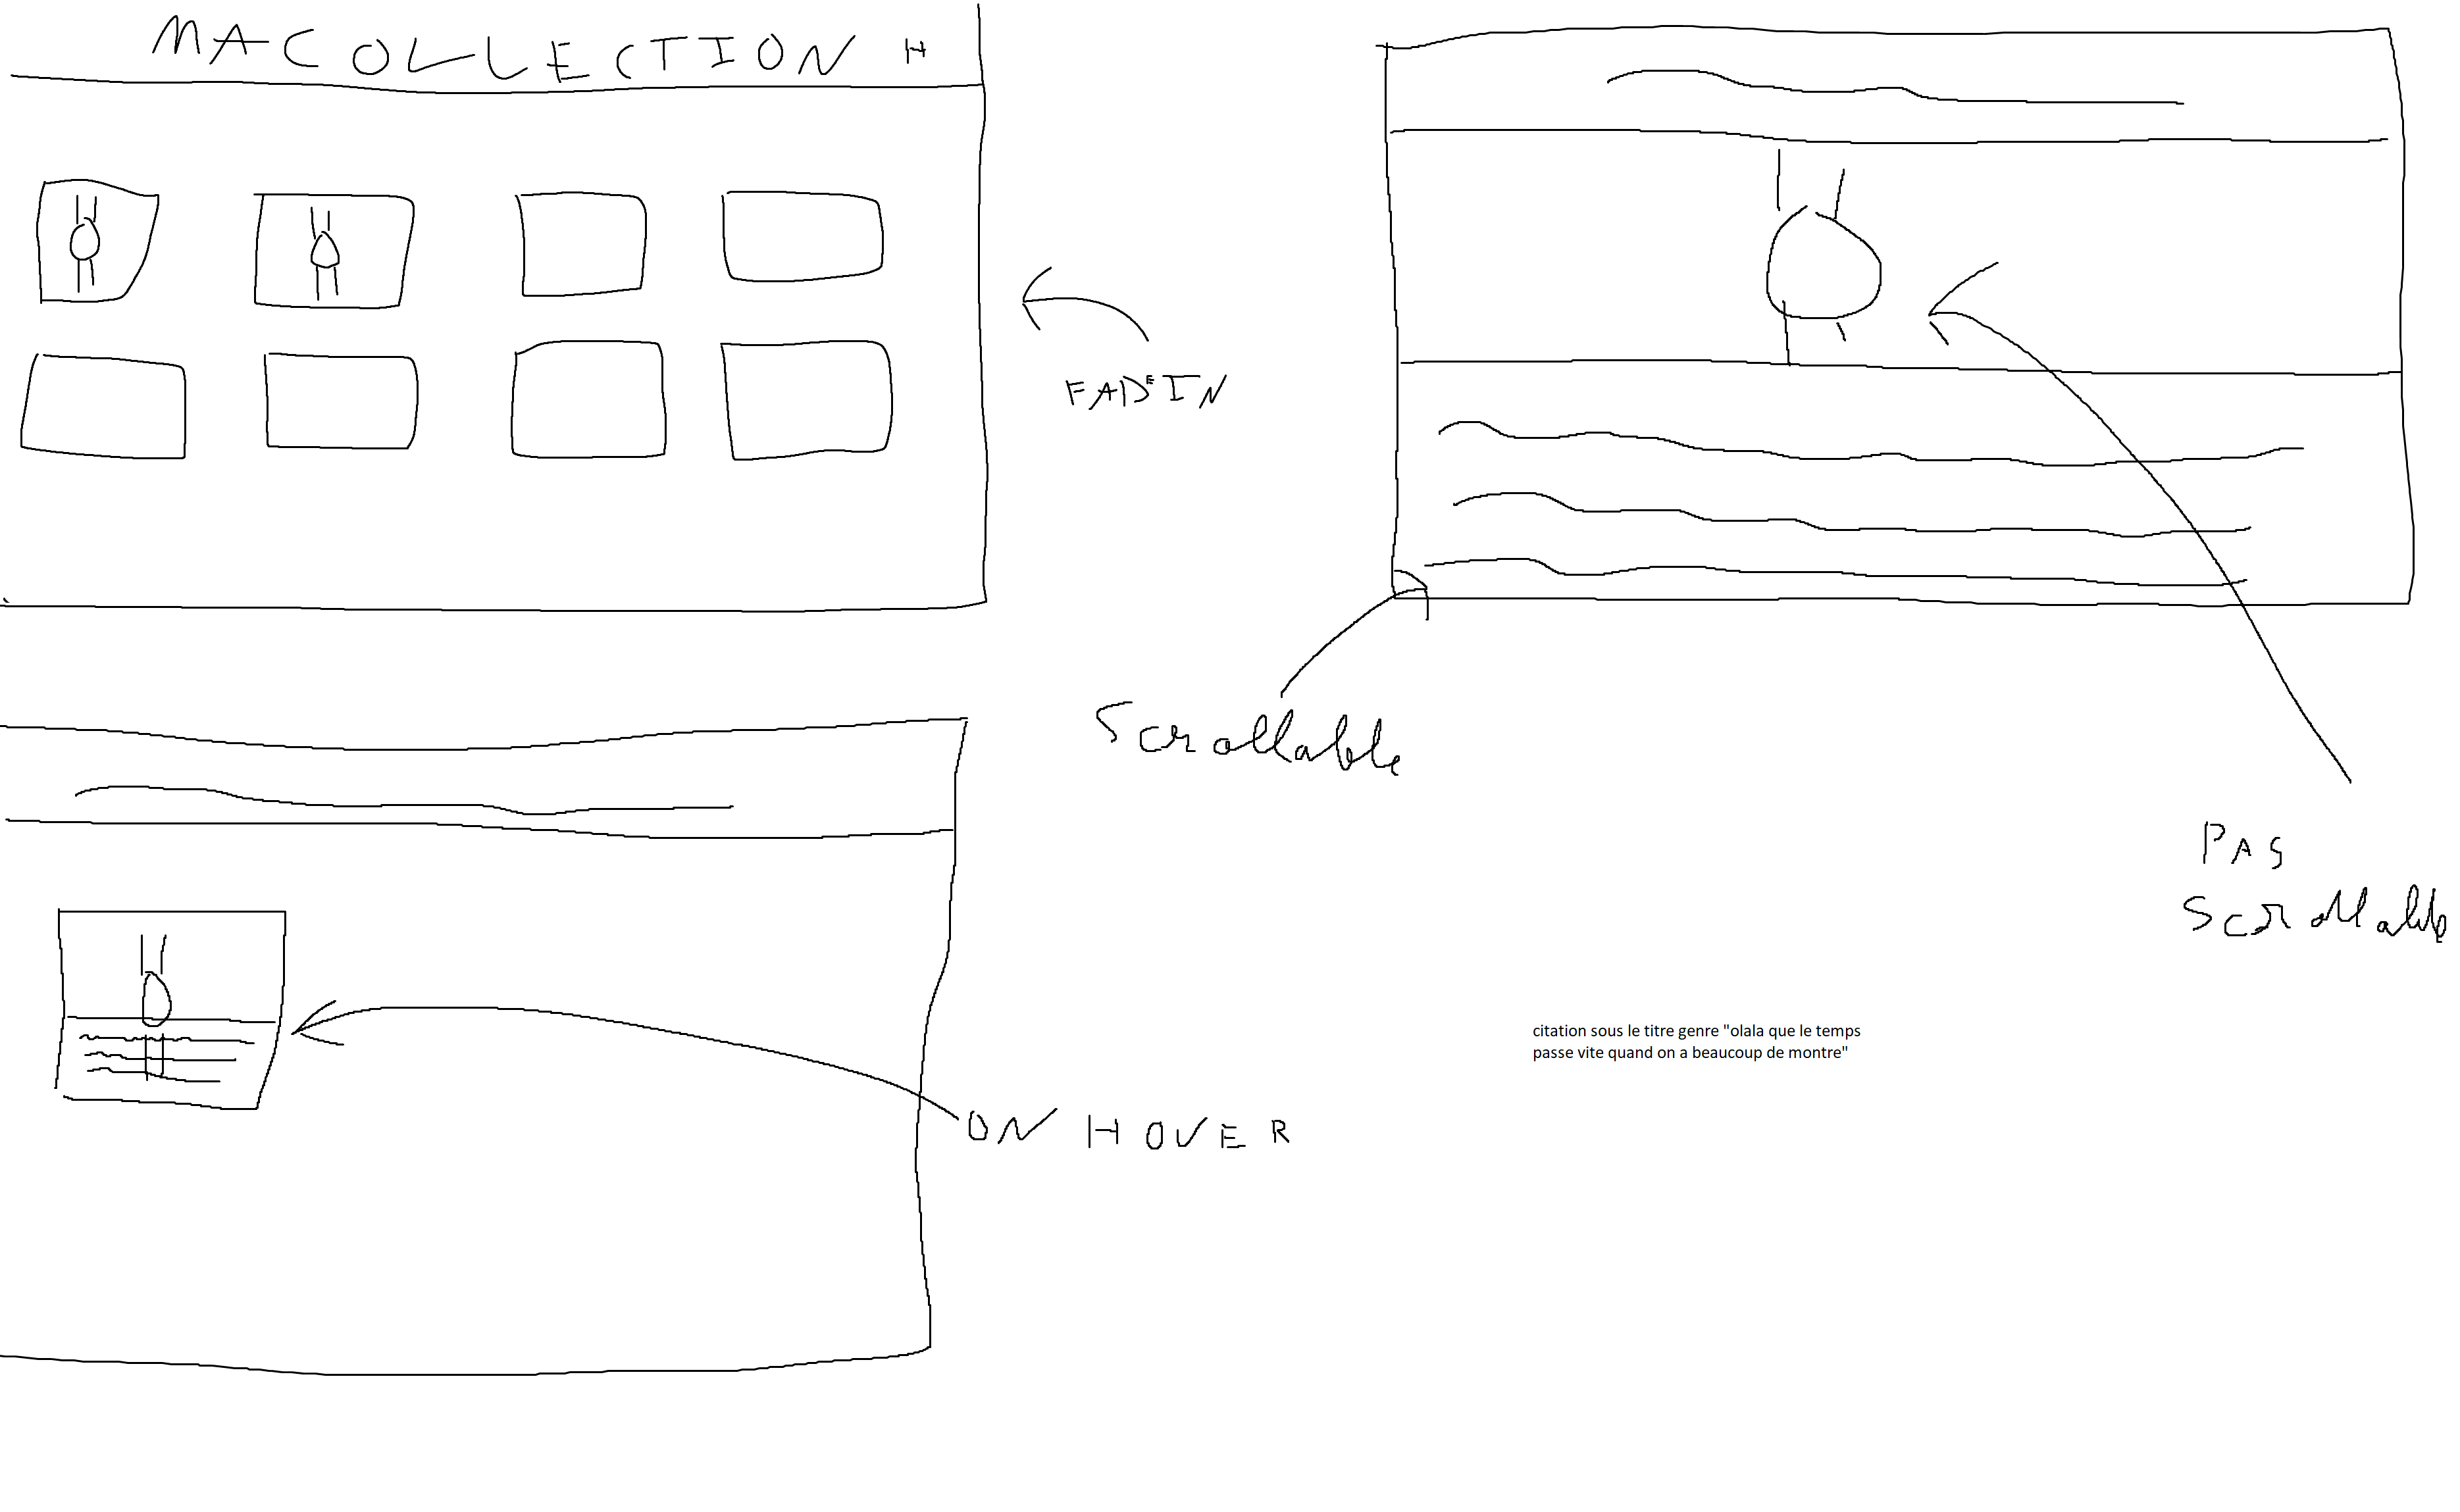 MA COLLECTION H
FADE IN
Scrollable
PAS
Scrollable
ON HOVER
citation sous le titre genre "olala que le temps
passe vite quand on a beaucoup de montre"